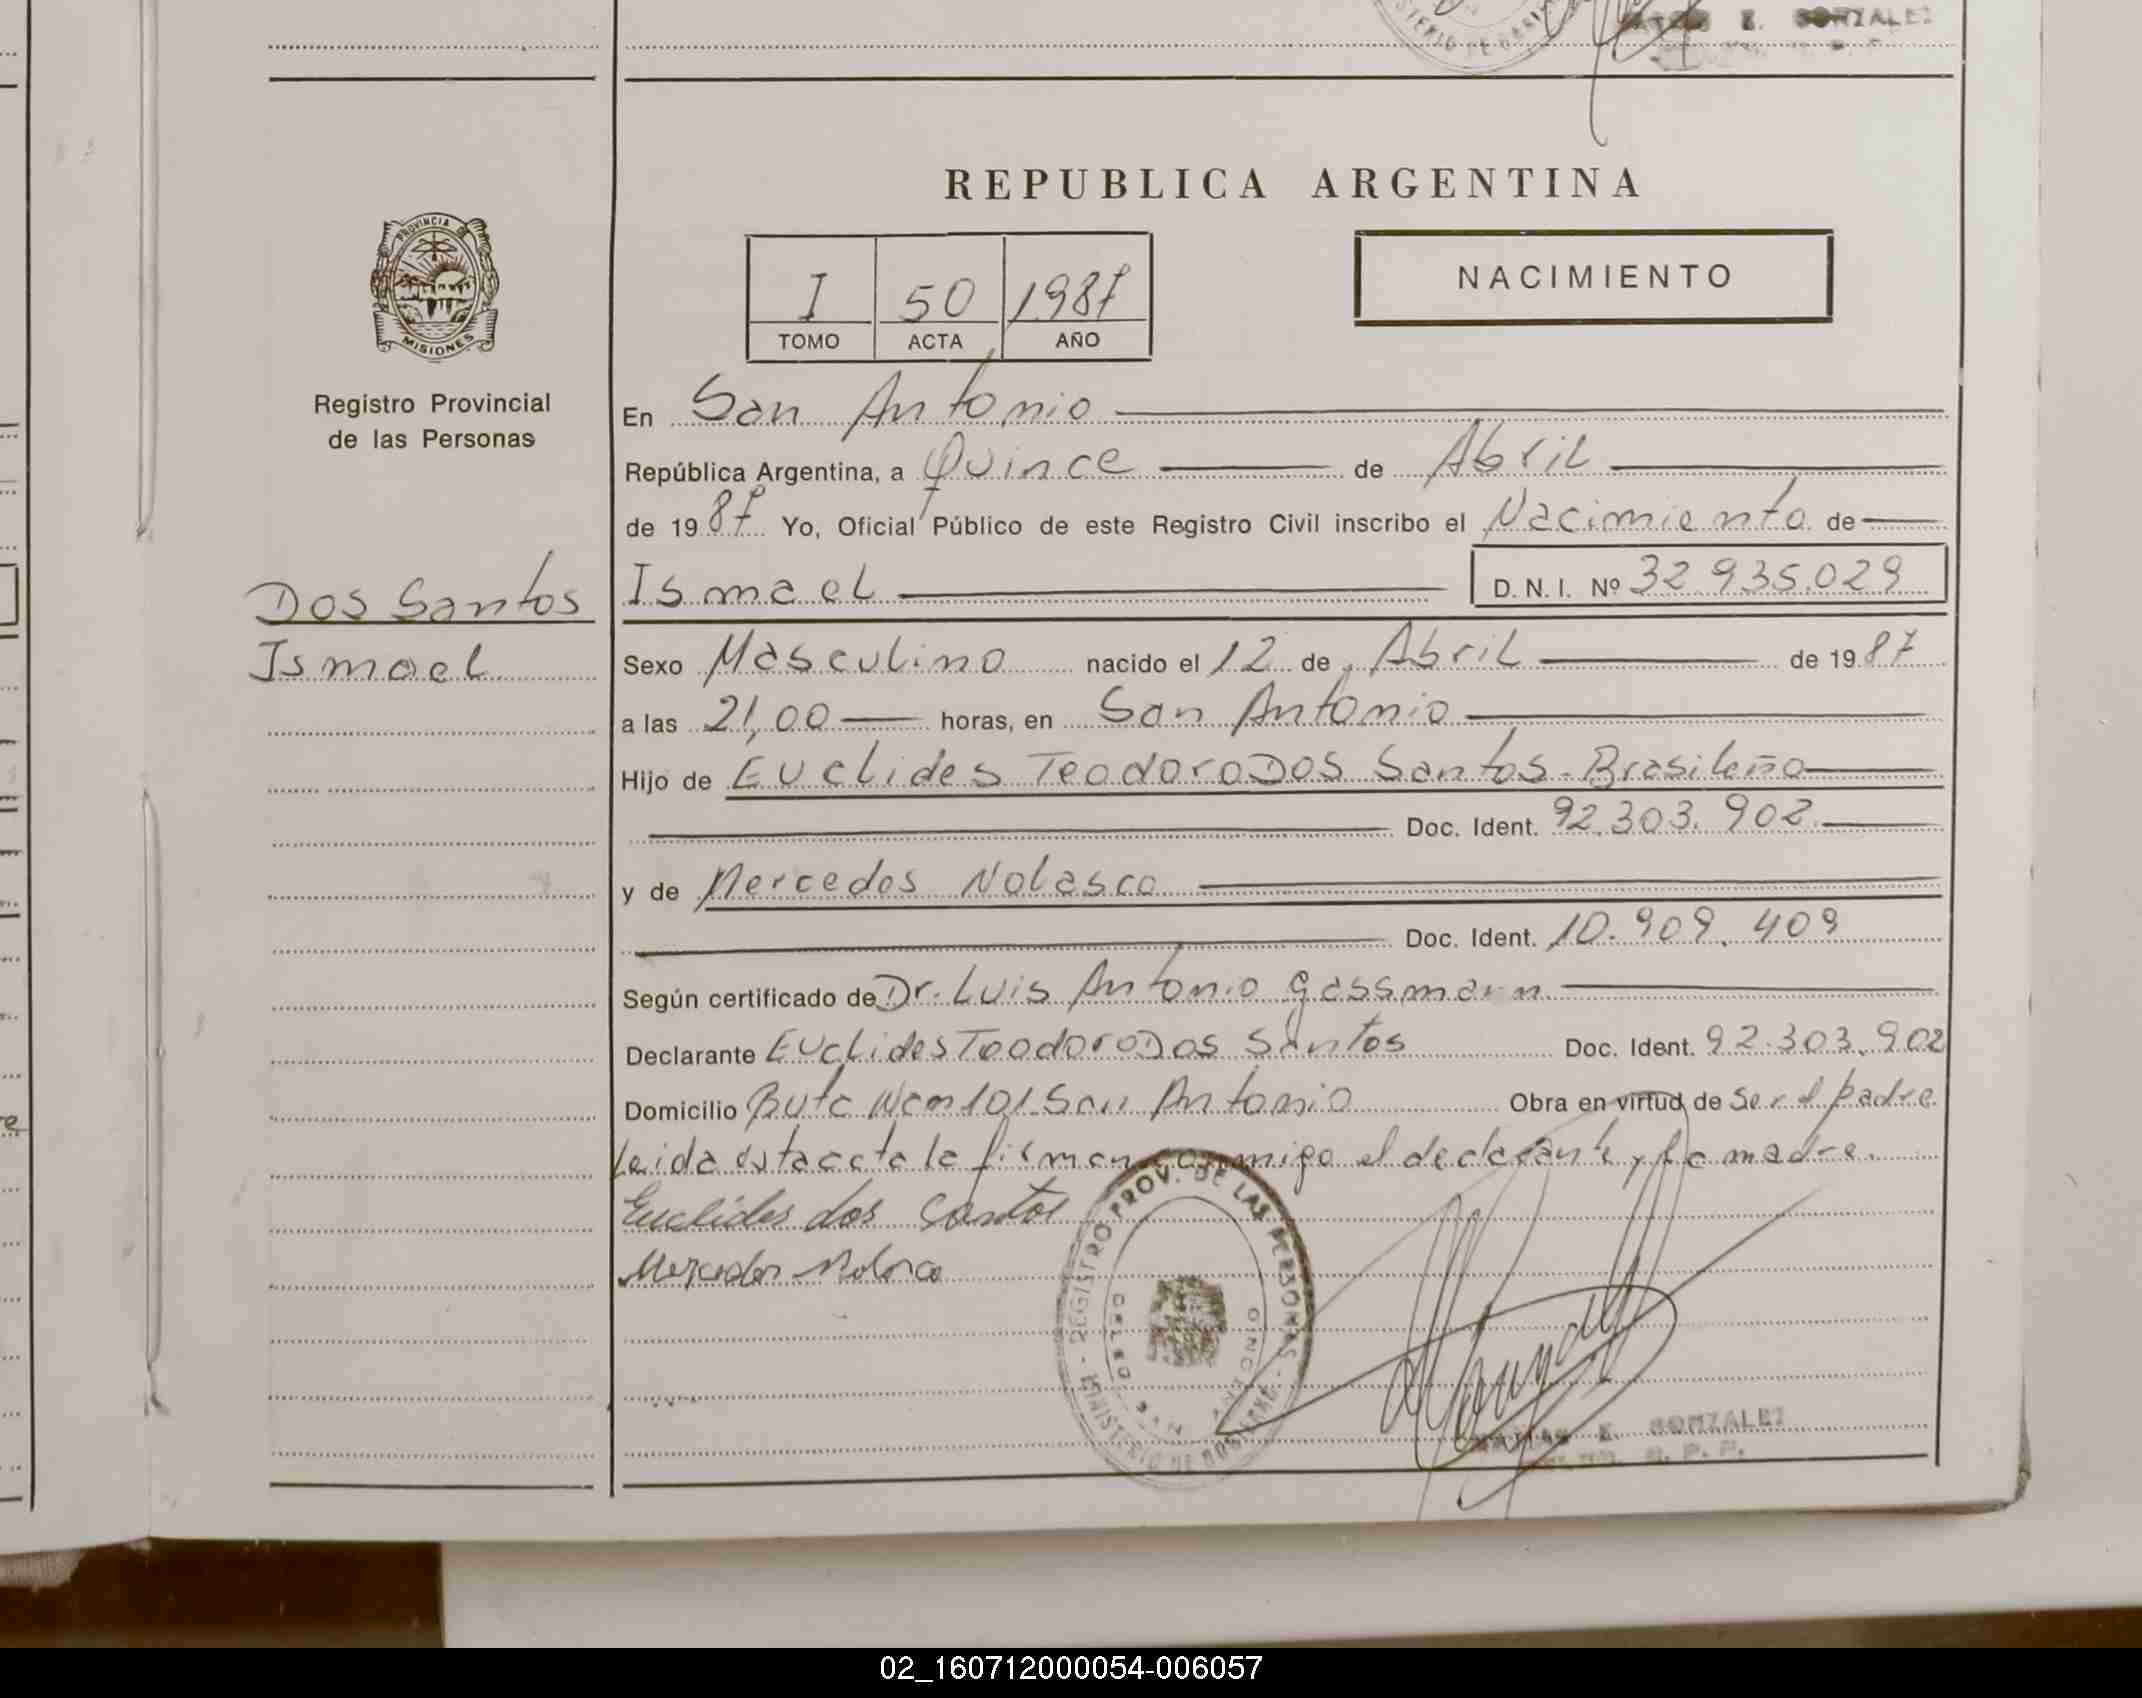 GONZALEZ
REPUBLICA ARGENTINA
PROVINCIA DE
MISIONES
Registro Provincial
de las Personas
I 50 1987
TOMO ACTA AÑO
NACIMIENTO
En San Antonio
República Argentina, a Quince de Abril
de 1987 Yo, Oficial Público de este Registro Civil inscribo el Nacimiento de
Dos Santos
Ismael
Ismael D. N. I. Nº 32.935.029
Sexo Masculino nacido el 12 de Abril de 1987
a las 21,00 horas, en San Antonio
Hijo de Euclides Teodoro Dos Santos - Brasileño
Doc. Ident. 92.303.902
y de Mercedes Nolasco
Doc. Ident. 10.909.409
Según certificado de Dr. Luis Antonio Gassmann
Declarante Euclides Teodoro Dos Santos Doc. Ident. 92.303.902
Domicilio Ruta 101 San Antonio Obra en virtud de Ser el padre
Leida esta acta la firman conmigo el declarante y la madre.
Euclides dos Santos
Mercedes Nolasco
REGISTRO PROV. DE LAS PERSONAS
MINISTERIO DE GOBIERNO
SAN ANTONIO
MATIAS E. GONZALEZ
02_160712000054-006057